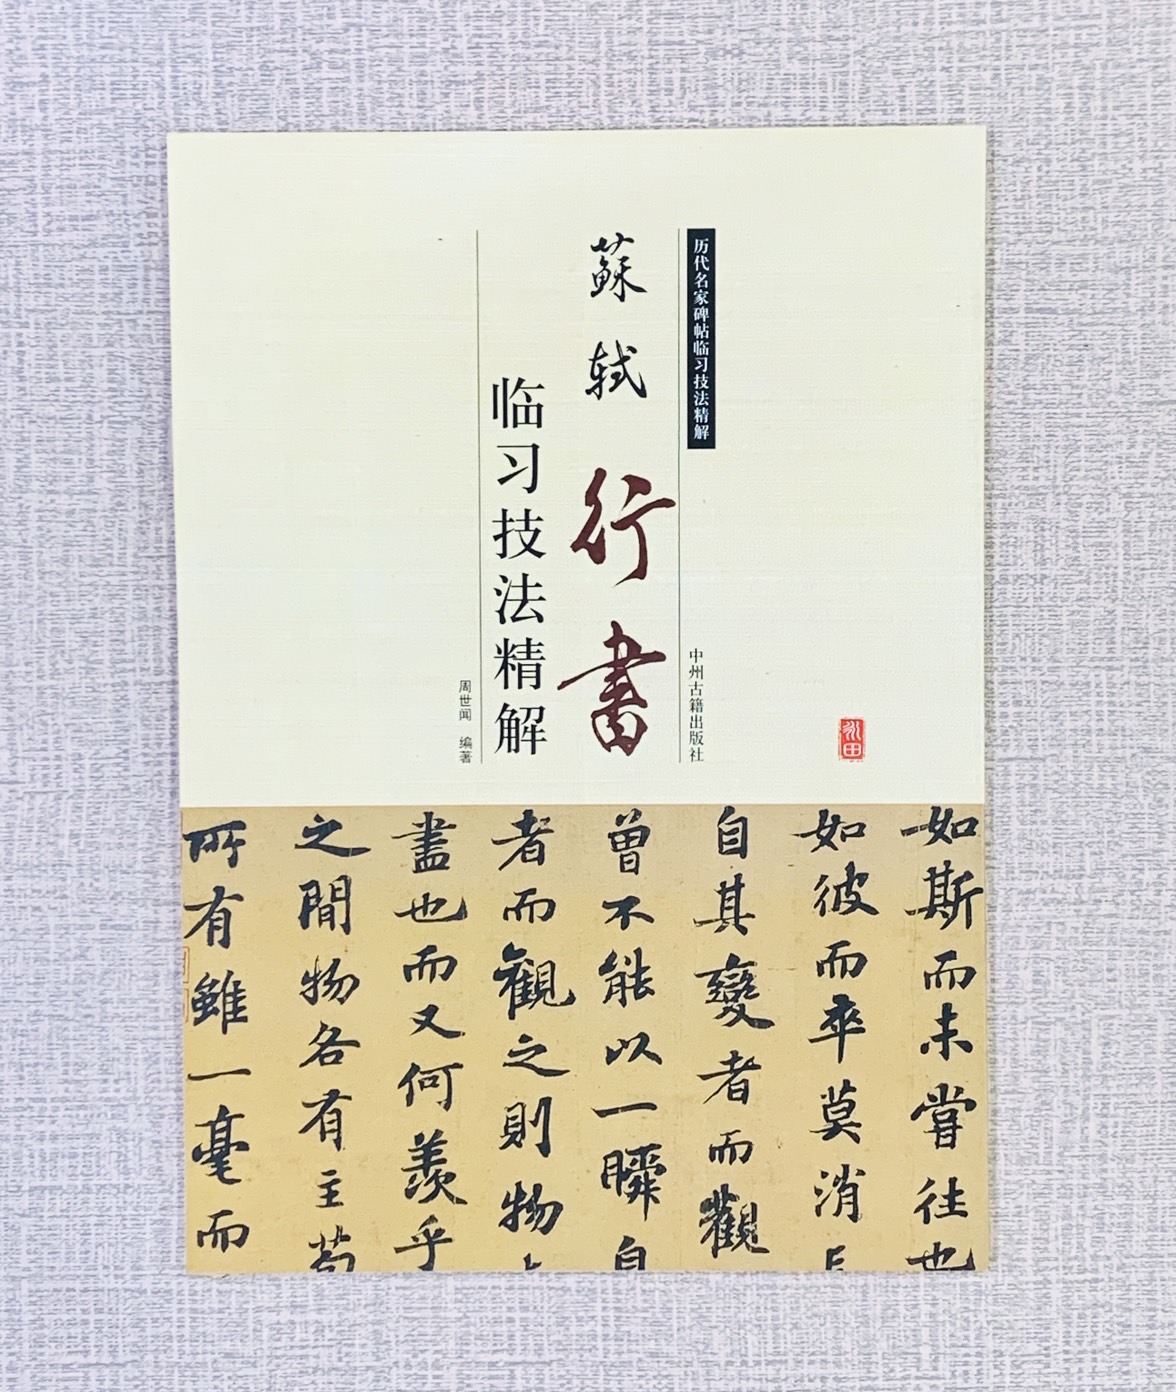 历代名家碑帖临习技法精解
中州古籍出版社
蘇軾行書
临习技法精解
周世闻 编著
如斯而未嘗往也
如彼而卒莫消
自其變者而觀
曾不能以一瞬自
者而觀之則物
盡也而又何羨乎
之間物各有主苟
所有雖一毫而